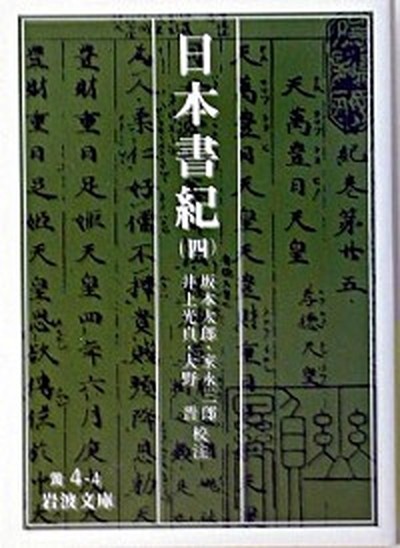 日本書紀
(四)
坂本太郎・家永三郎
井上光貞・大野 晋 校注
黄4-4
岩波文庫
紀巻第廿五
天萬豊日天皇 孝徳天皇
天萬豊日天皇天
為人柔仁好儒不擇貴賤頻降恩勅天
豊財重日足姫天皇四年六月庚
豊財重日足姫天皇思欲傳位於中大